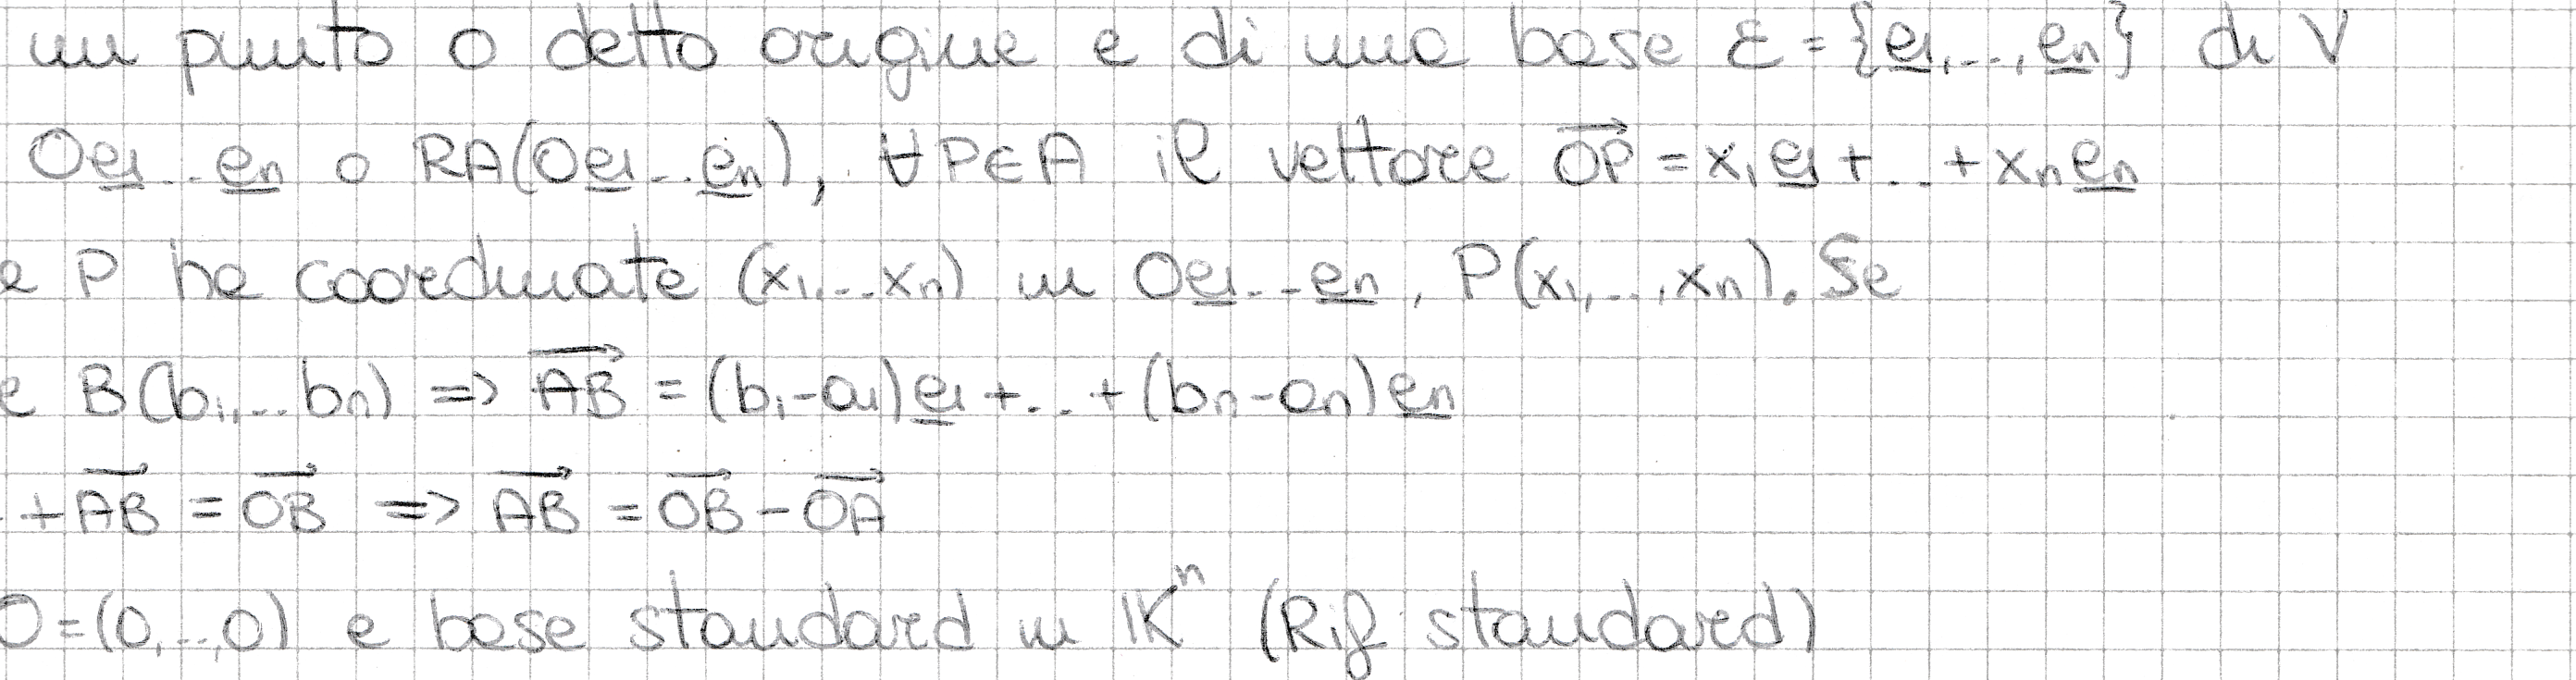 un punto O detto origine e di una base Ɛ = {e1,..,en} di V
Oe1..en o RA(Oe1..en), ∀P∈A il vettore OP→ = x1e1+..+xnen
e P ha coordinate (x1,..xn) in Oe1..en, P(x1,..,xn). Se
e B(b1,..bn) => AB→ = (b1-a1)e1+..+(bn-an)en
+AB→ = OB→ => AB→ = OB→ - OA→
O=(0,..,0) e base standard in IKⁿ (Rif standard)